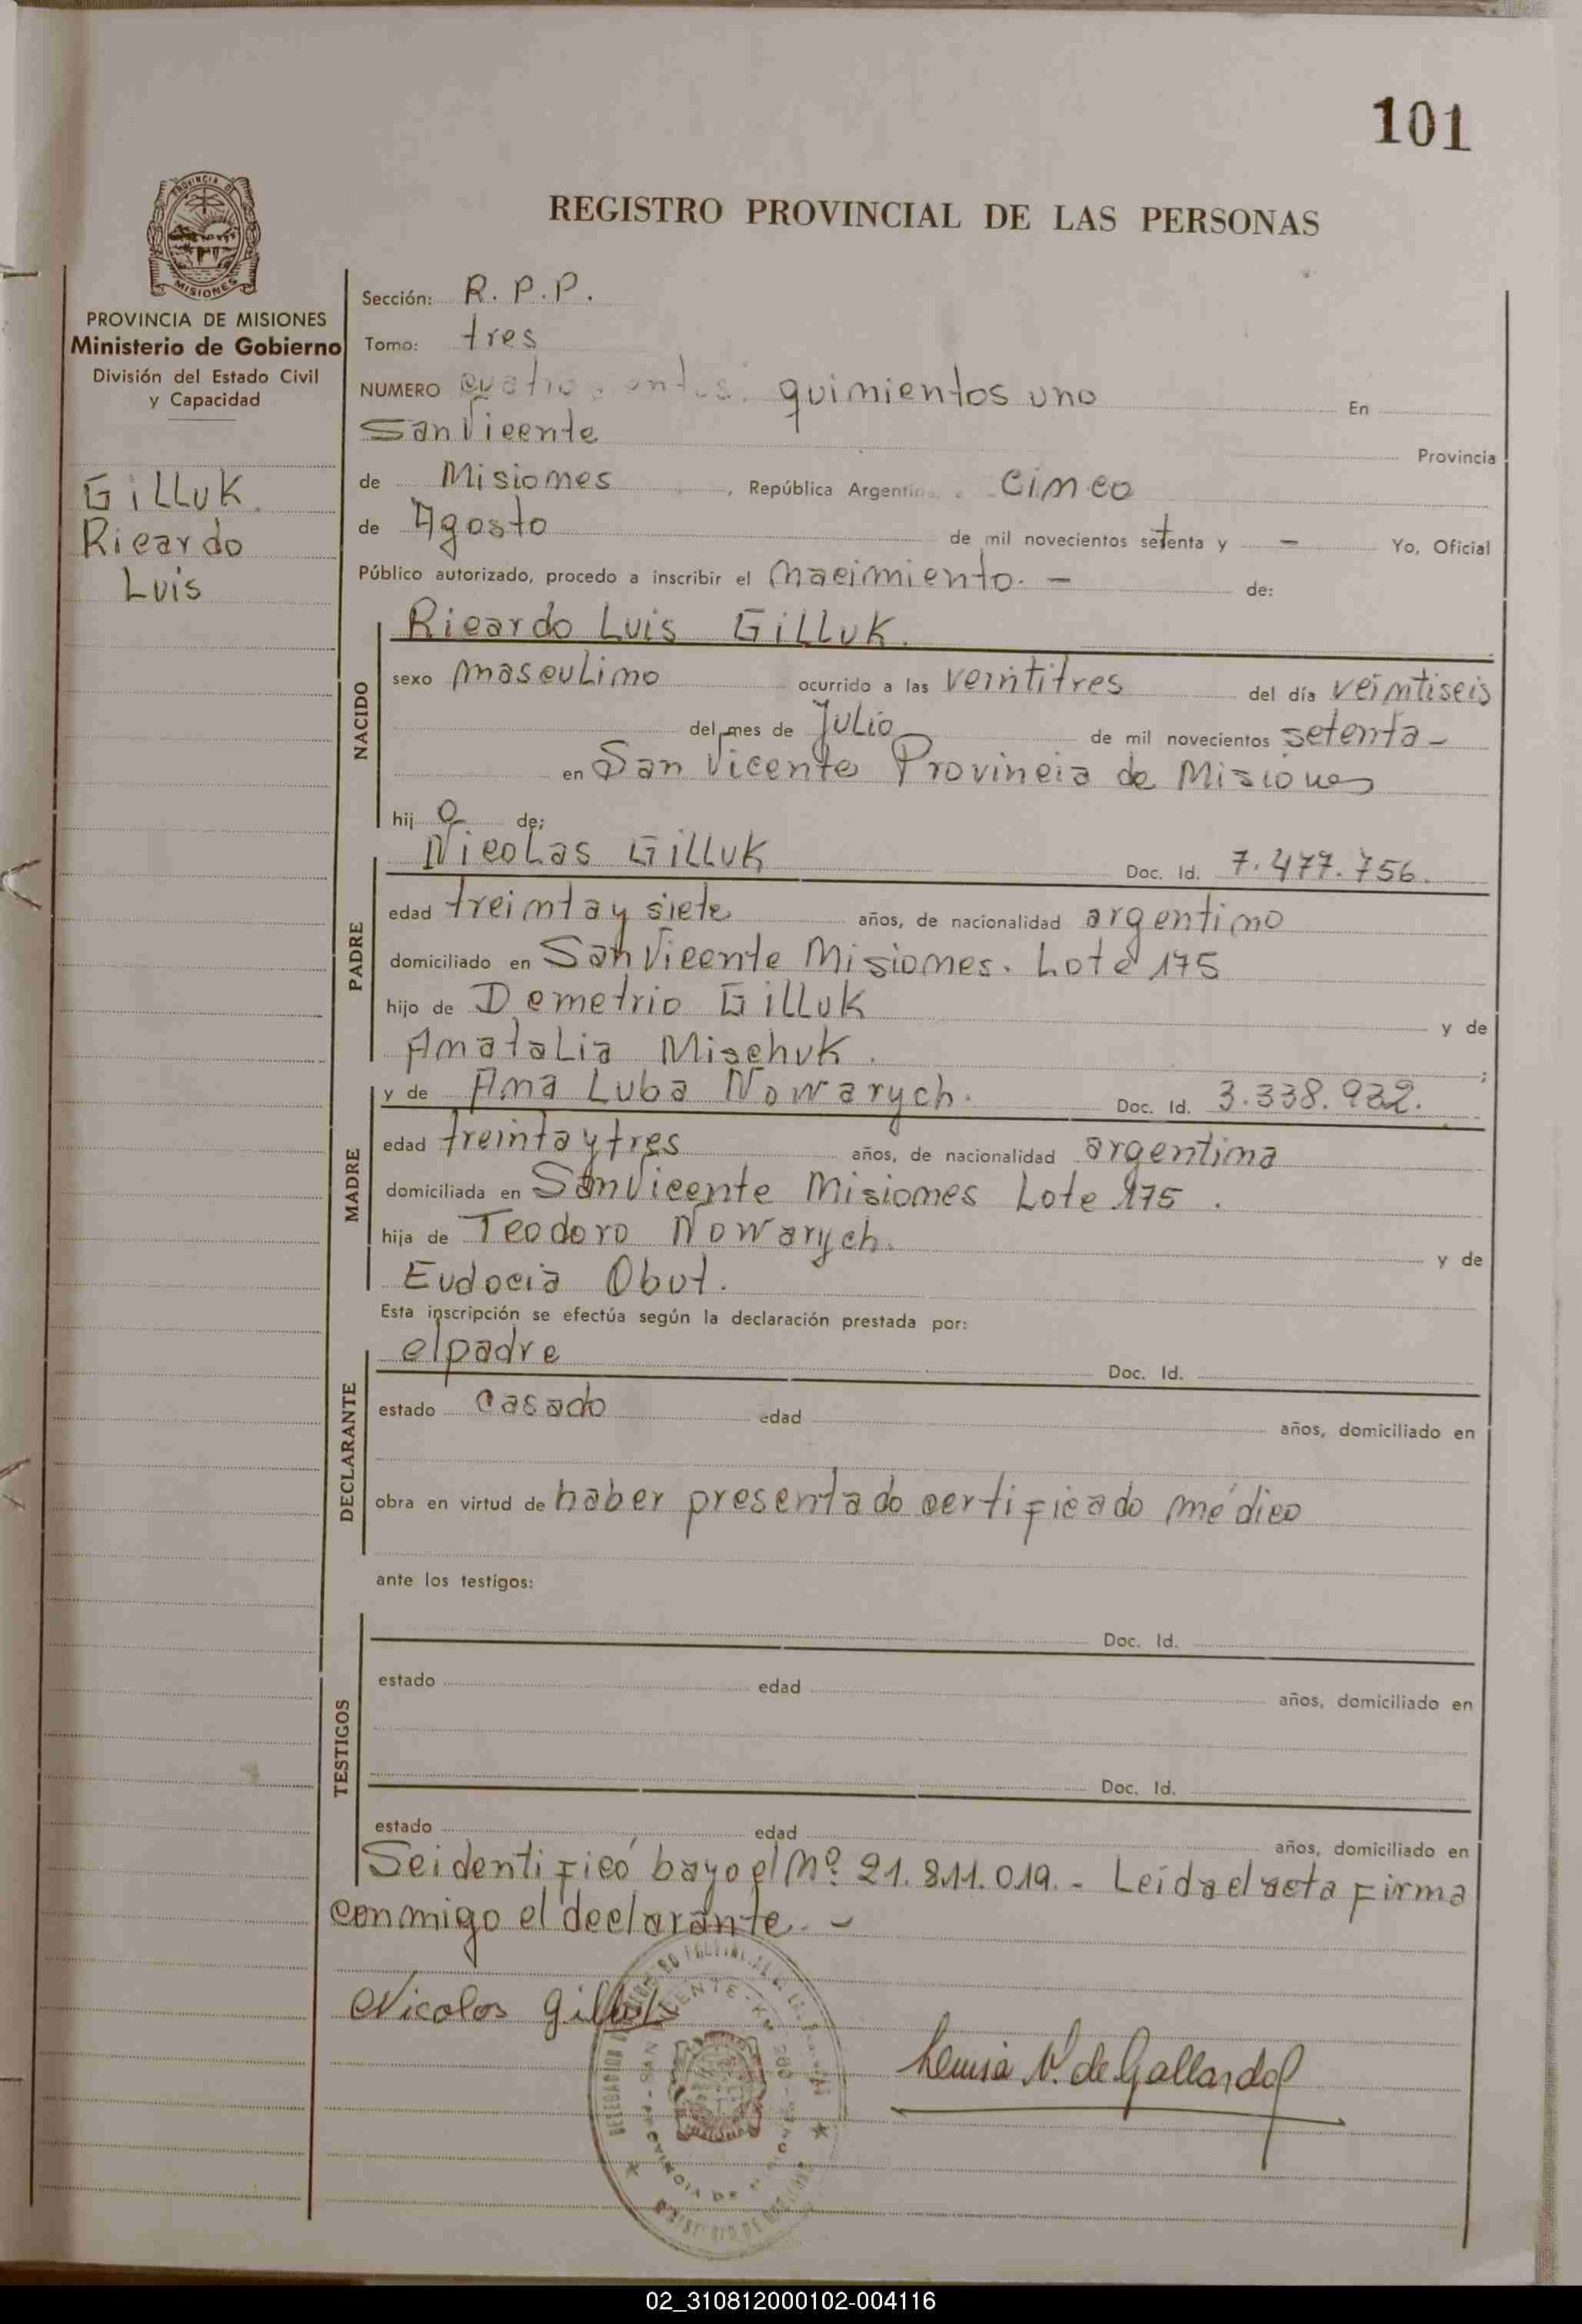 101
REGISTRO PROVINCIAL DE LAS PERSONAS
PROVINCIA DE MISIONES
Ministerio de Gobierno
División del Estado Civil
y Capacidad
Gilluk
Ricardo
Luis
Sección: R. P. P.
Tomo: tres
NUMERO quinientos uno En
San Vicente Provincia
de Misiones, República Argentina, a cinco
de Agosto de mil novecientos setenta y - Yo, Oficial
Público autorizado, procedo a inscribir el nacimiento. - de:
NACIDO
Ricardo Luis Gilluk.
sexo masculino ocurrido a las veintitres del día veintiseis
del mes de Julio de mil novecientos setenta -
en San Vicente Provincia de Misiones
hij o de;
PADRE
Nicolas Gilluk Doc. Id. 7.477.756.
edad treinta y siete años, de nacionalidad argentino
domiciliado en San Vicente Misiones. Lote 175
hijo de Demetrio Gilluk y de
Anatalia Mischuk.
MADRE
y de Ana Luba Nowarych. Doc. Id. 3.338.932.
edad treinta y tres años, de nacionalidad argentina
domiciliada en San Vicente Misiones Lote 175.
hija de Teodoro Nowarych. y de
Eudocia Obut.
Esta inscripción se efectúa según la declaración prestada por:
DECLARANTE
el padre Doc. Id.
estado casado edad años, domiciliado en
obra en virtud de haber presentado certificado médico
ante los testigos:
TESTIGOS
Doc. Id.
estado edad años, domiciliado en
Doc. Id.
estado edad años, domiciliado en
Se identificó bayo el Nº 21.811.019. - Leída el acta firma
conmigo el declarante. -
Nicolas Gilluk
de Gallardo
02_310812000102-004116